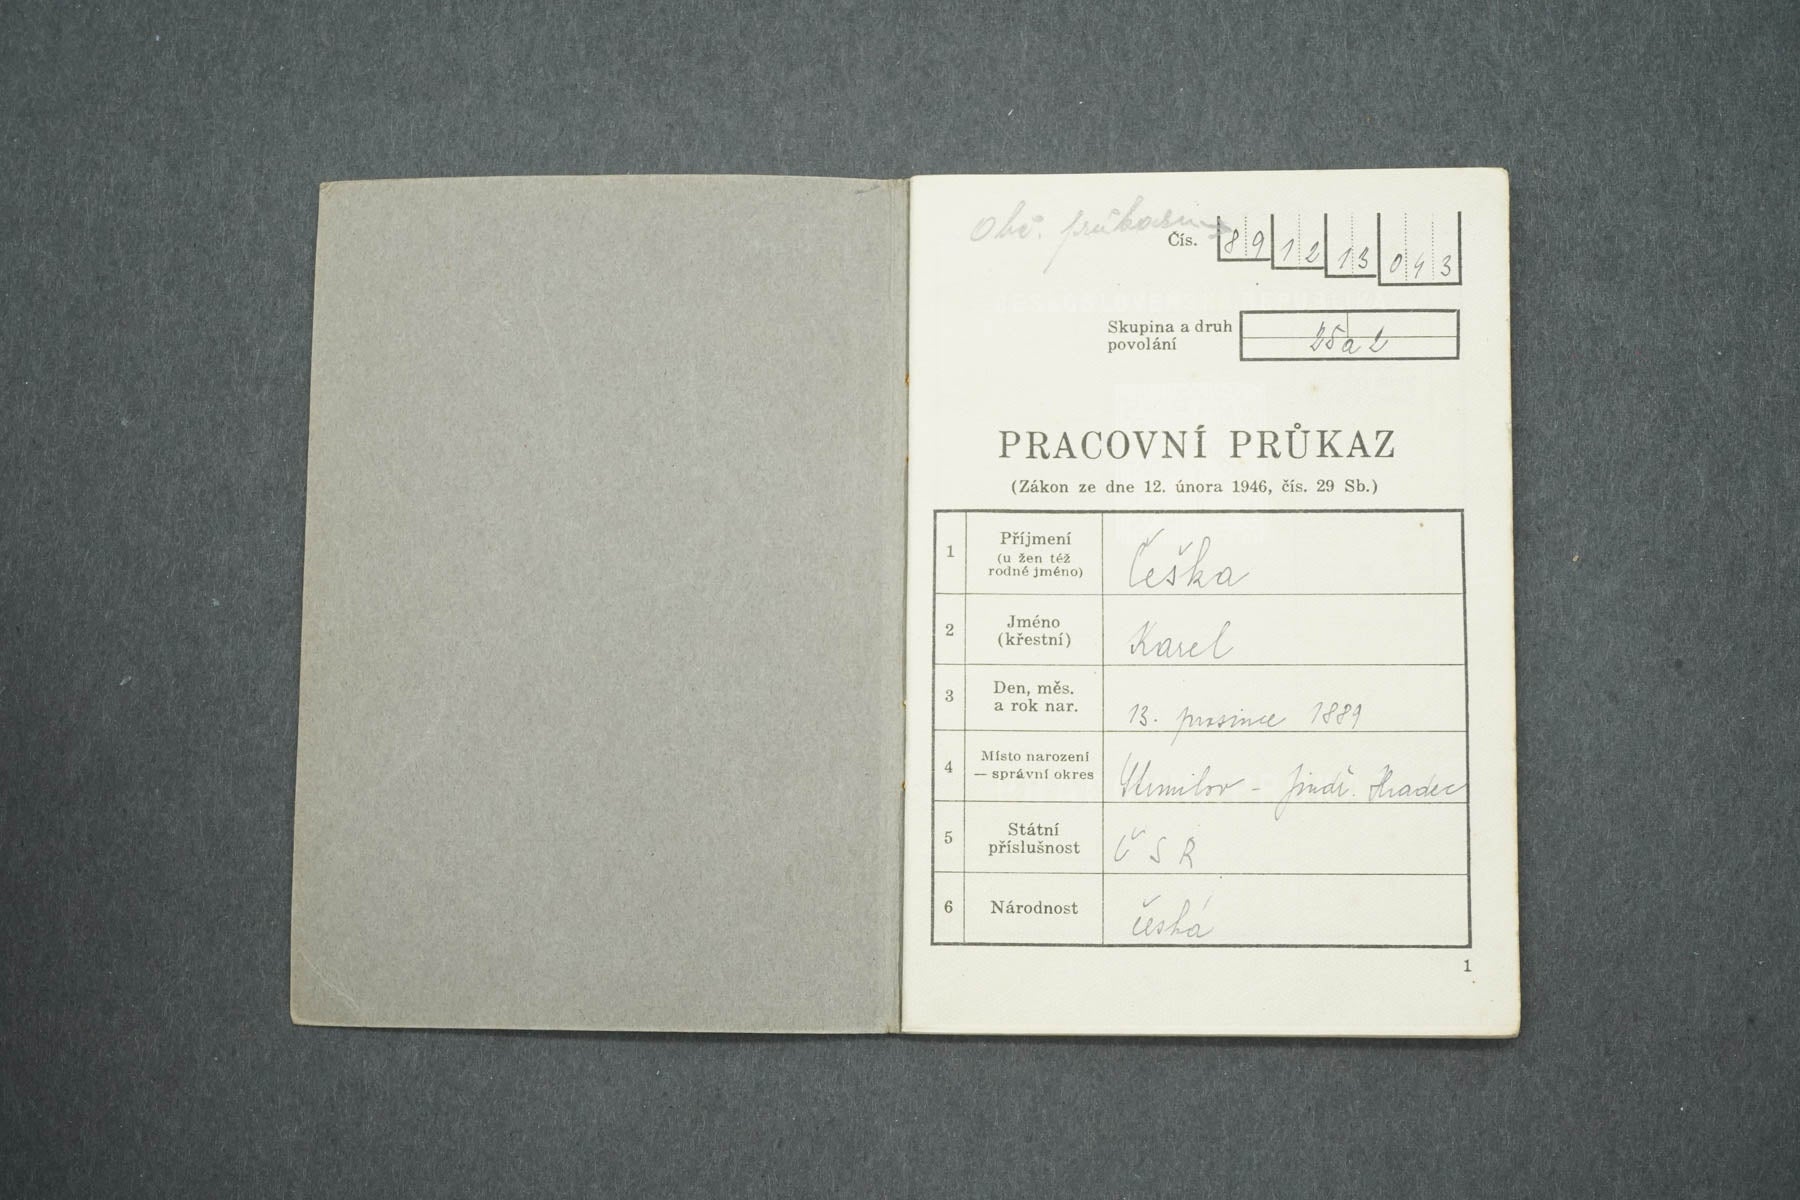 Obč. průkazu
Čís. 89 12 13 043
Skupina a druh
povolání
25 a 2
PRACOVNÍ PRŮKAZ
(Zákon ze dne 12. února 1946, čís. 29 Sb.)
1
Příjmení
(u žen též
rodné jméno)
Češka
2
Jméno
(křestní)
Karel
3
Den, měs.
a rok nar.
13. prosince 1889
4
Místo narození
— správní okres
Strmilov - Jindř. Hradec
5
Státní
příslušnost
Č S R
6
Národnost
česká
1